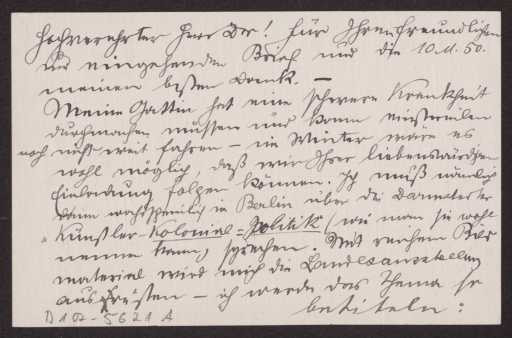 Hochverehrter Herr Dr! Für Ihren freundlichen
und eingehenden Brief und die 10 M. 50.
meinen besten Dank. —
Meine Gattin hat eine schwere Krankheit
durchmachen müssen und kann einstweilen
noch nicht weit fahren — im Winter wäre es
wohl möglich, daß wir Ihrer liebenswürdigen
Einladung folgen können. Ich muß nämlich
dann wahrscheinlich in Berlin über die Darmstädter
„Künstler-Kolonial=Politik (wie man sie wohl
nennen kann) sprechen. Mit reichem Bilder
material wird mich die Landesausstellung
ausrüsten — ich werde das Thema so
betiteln:
D 102-5621 A